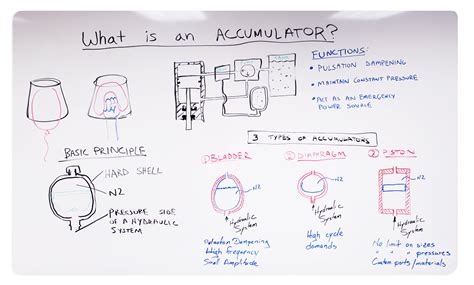 What is an ACCUMULATOR?
FUNCTIONS:
• PULSATION DAMPENING
• MAINTAIN CONSTANT PRESSURE
• ACT AS AN EMERGENCY
POWER SOURCE
3 TYPES OF ACCUMULATORS
BASIC PRINCIPLE
HARD SHELL
N2
PRESSURE SIDE
OF A HYDRAULIC
SYSTEM
BLADDER
N2
Hydraulic
System
Pulsation Dampening
High frequency
Small Amplitude
DIAPHRAGM
N2
Hydraulic
System
High cycle
demands
PISTON
N2
Hydraulic
System
No limit on sizes
" " pressures
Custom ports/materials